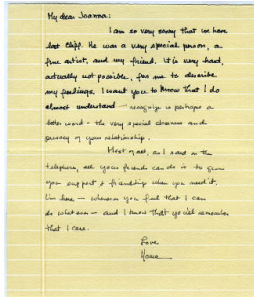 My dear Joanna:
I am so very sorry that we have
lost Cliff. He was a very special person, a
fine artist, and my friend. It is very hard,
actually not possible, for me to describe
my feelings. I want you to know that I do
almost understand — recognize is perhaps a
better word — the very special closeness and
of your relationship.
Most of all, as I said on the
telephone, all your friends can do is to give
you support & friendship when you need it.
I'm here — whenever you find that I can
do whatever — and I know that you'll remember
that I care.
Love